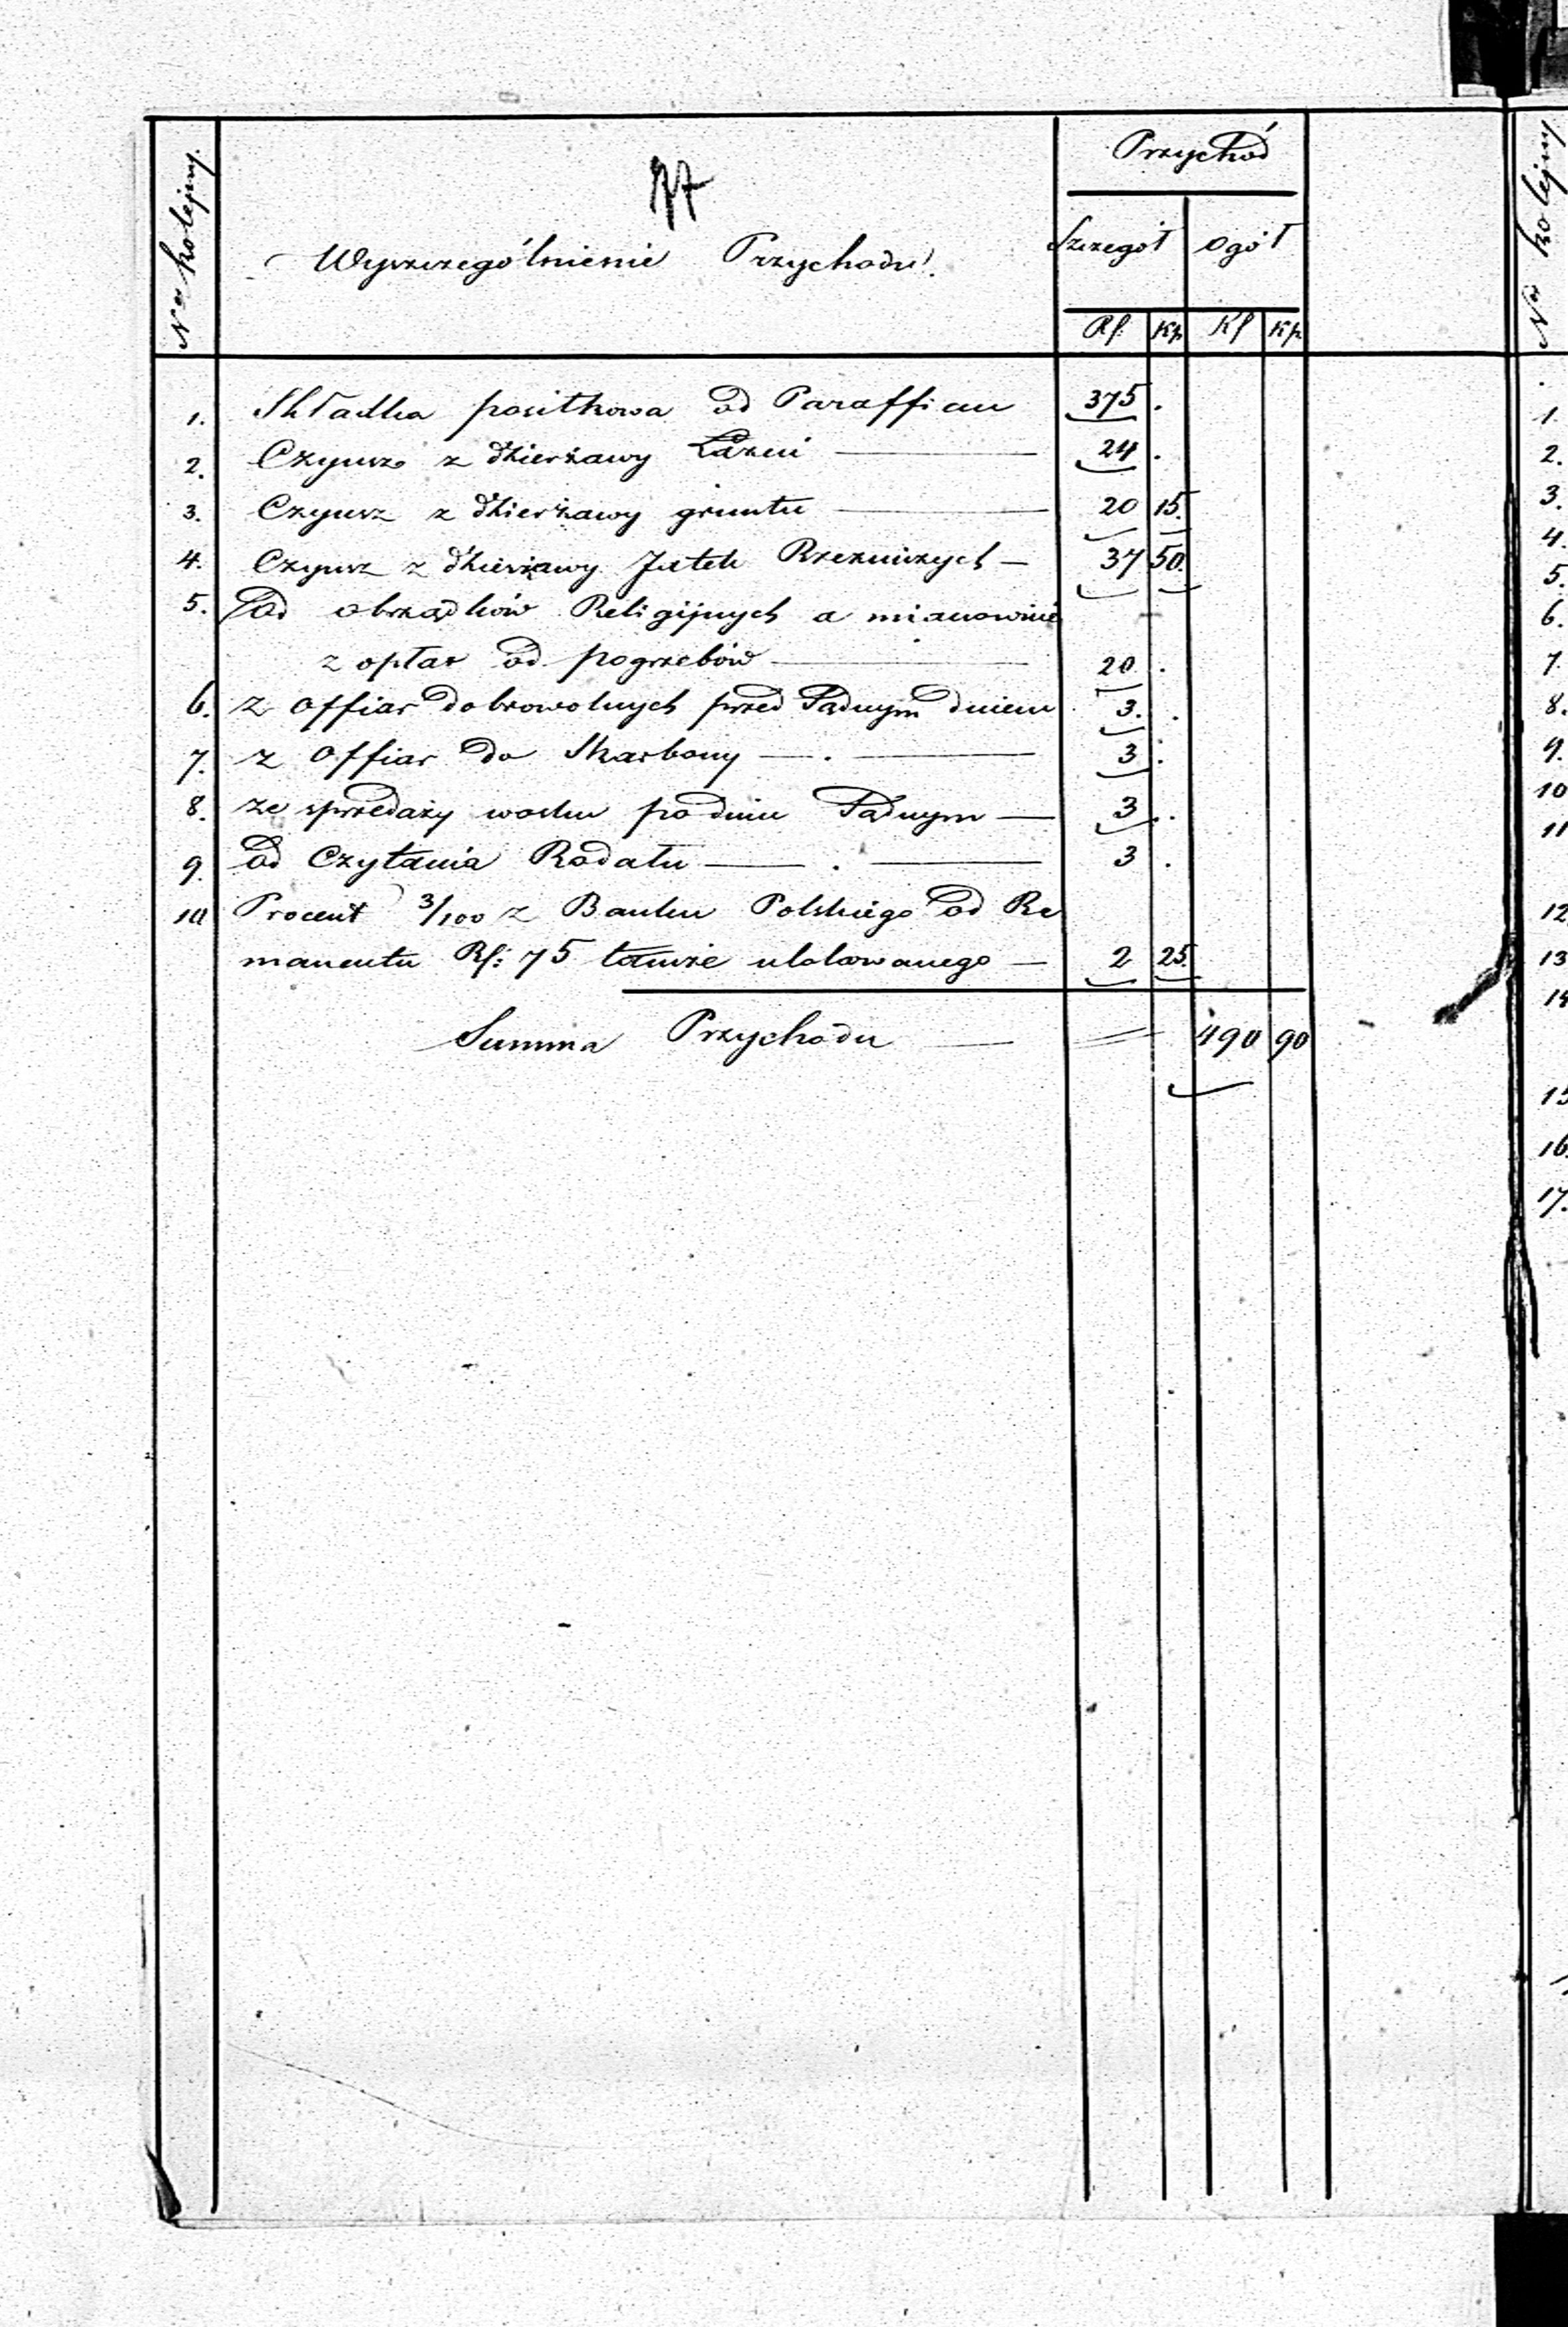 Nro kolejny.
Wyszczególnienie Przychodu.
Przychód
Szczegół Ogół
Rs. Kp Rs Kp
1. Składka posiłkowa od Paraffian 375 .
2. Czynsz z dzierżawy Łaźni — 24 .
3. Czynsz z dzierżawy gruntu — 20 15.
4. Czynsz z dzierżawy Jatek Rzeźniczych — 37 50.
5. Od obrządków Religijnych a mianowicie
z opłat od pogrzebów — 20 .
6. z Offiar dobrowolnych przed Sądnym dniem 3. .
7. z Offiar do Skarbony — . — 3 .
8. ze sprzedaży wosku po dniu Sądnym — 3 .
9. od Czytania Rodału — . — 3 .
10 Procent 3/100 z Banku Polskiego od Re
manentu Rs: 75 tamże ulokowanego — 2 25.
Summa Przychodu — = 490 90
Nro kolejny
1.
2.
3.
4.
5.
6.
7.
8.
9.
10
11
12
13
14
15
16.
17.